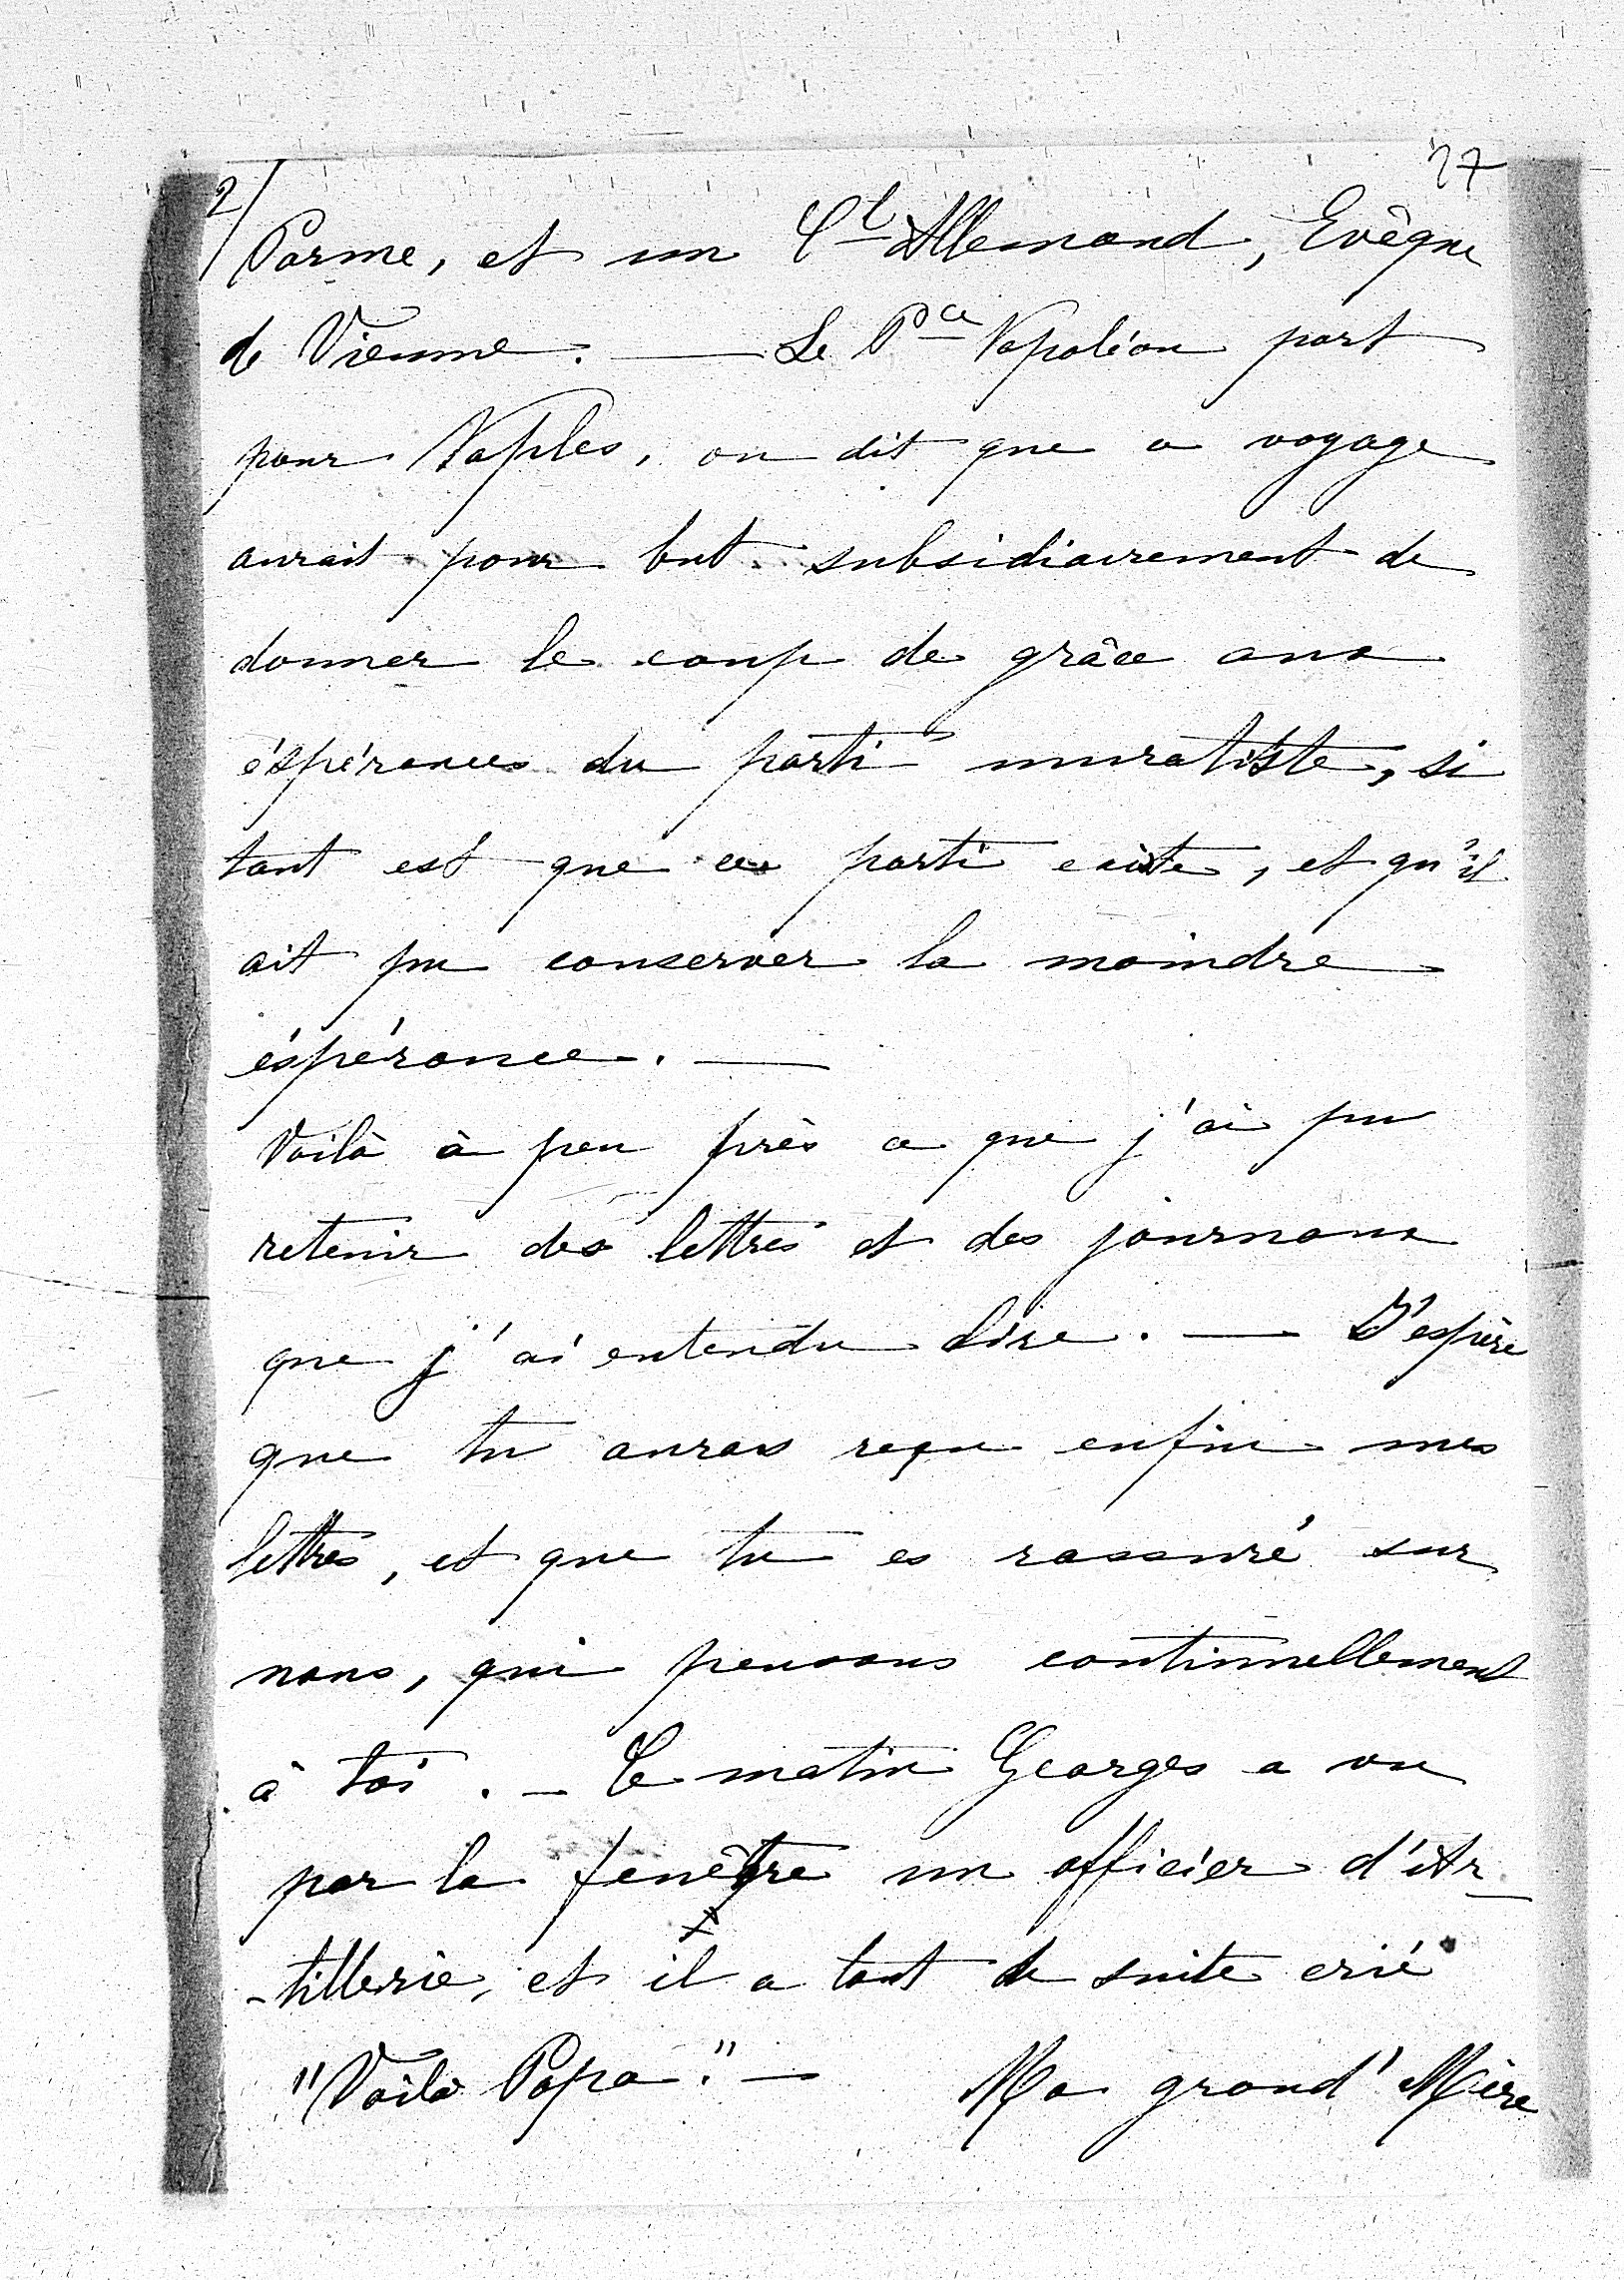 2/
77
Parme, et un Cl Allemand, Evêque
de Vienne. — Le Pce Napoléon part
pour Naples, on dit que ce voyage
aurait pour but subsidiairement de
donner le coup de grâce aux
éspérances du parti muratiste, si
tant est que ce parti existe, et qu'il
ait pu conserver la moindre
éspérance. —
Voilà à peu près ce que j'ai pu
retenir des lettres et des journaux
que j'ai entendu lire. — J'espère
que tu auras reçu enfin mes
lettres, et que tu es rassuré sur
nous, qui pensons continuellement
à toi. — Ce matin Georges a vu
par la fenêtre un officier d'Ar
-tillerie, et il a tout de suite crié
"Voilà Papa." — Ma grand' Mère